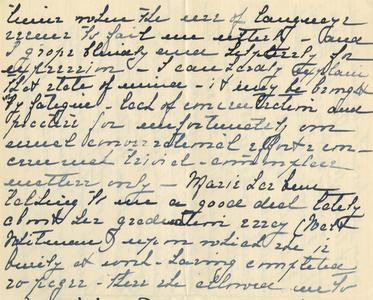 times when the use of language
seems to fail me utterly - and
I grope blindly and helplessly for
expression - I can scarcely explain
that state of mind - it may be brought
by fatigue - lack of concentration and
practice for unfortunately our
usual conversational efforts
trivial - commonplace
matters only - Marie has been
talking to me a good deal lately
about her graduation essay (Walt
Whitman) upon which she is
busily at work - having completed
10 pages - then she allowed me to